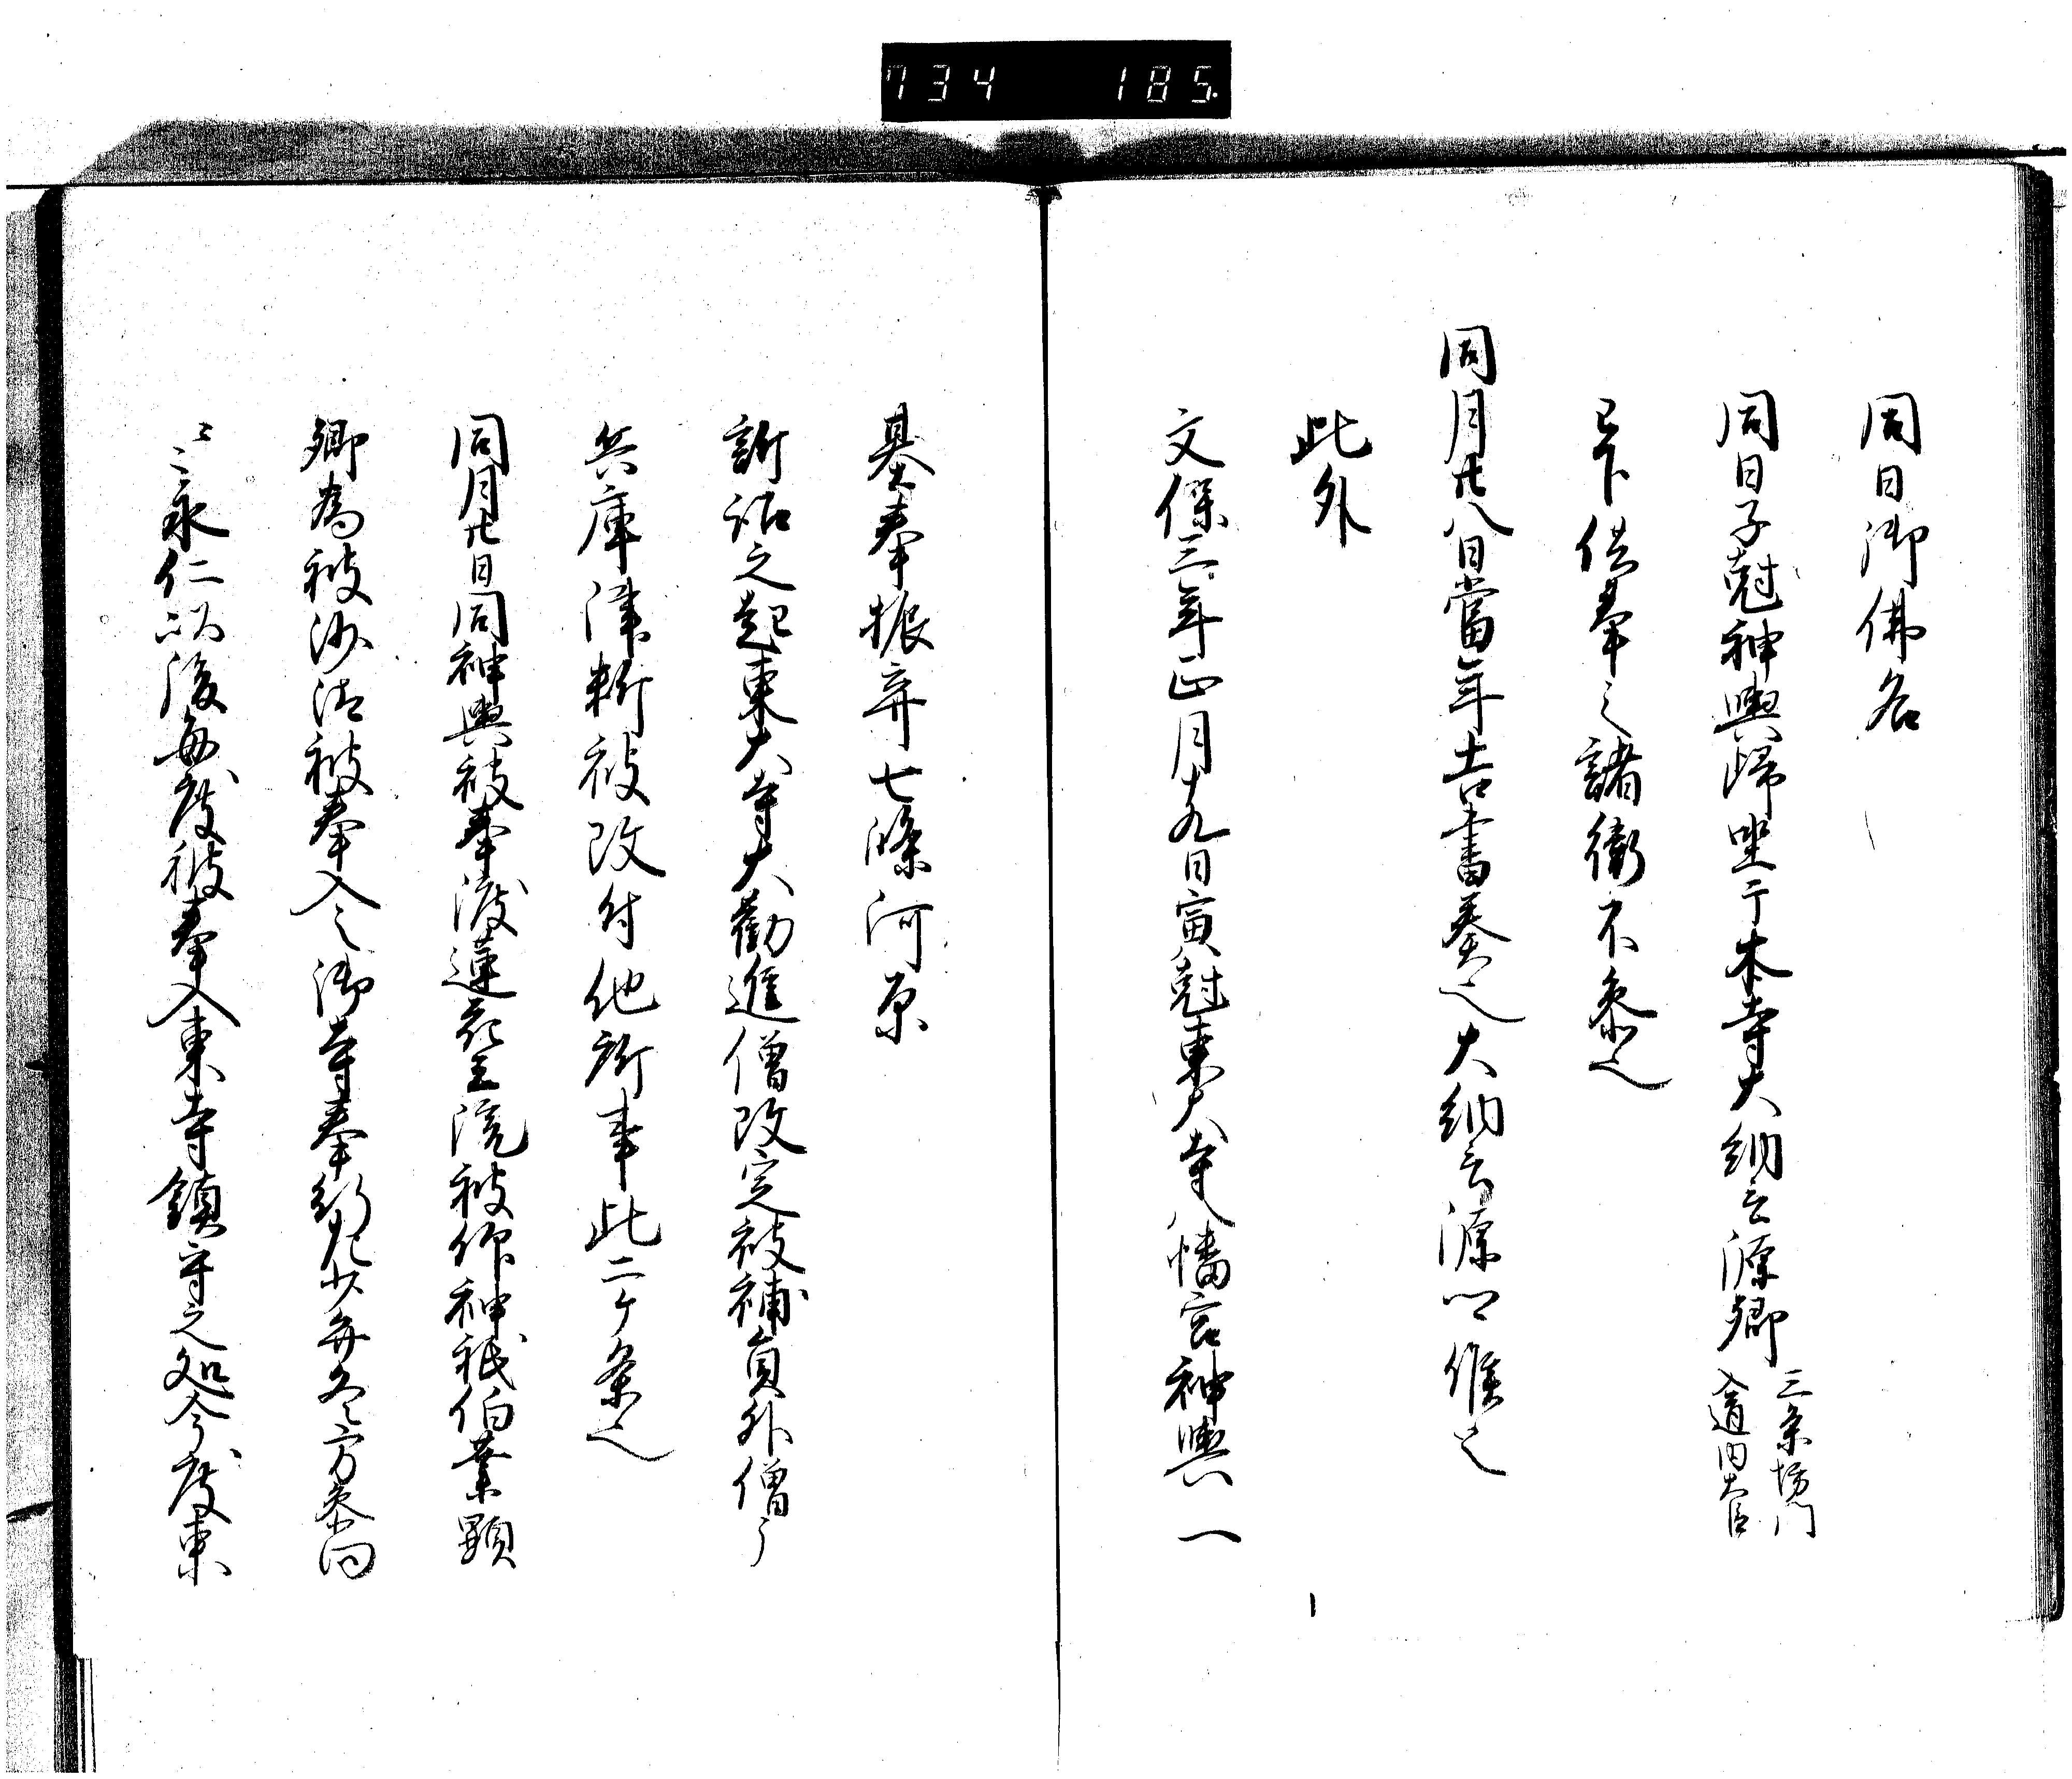 734 185
同日御佛名
同日子尅神輿歸坐于本寺大納言源卿
三条坊門
入道内大臣
已下供奉之諸衛不参之
同月廿八日當年吉書奏之大納言源卿候之
此外
文保三年正月十九日寅尅東大寺八幡宮神輿一
基奉振弃七條河原
訴詔之起東大寺大勸進僧改定被補員外僧了
兵庫津析被改付他所事此二ケ条之
同月廿日同神輿被奉渡蓮花王院被仰神祇伯業顕
卿為被沙汰被奉入之御寺奉行少弁冬方参向
云々永仁以後毎度被奉入東寺鎮守之処今度東